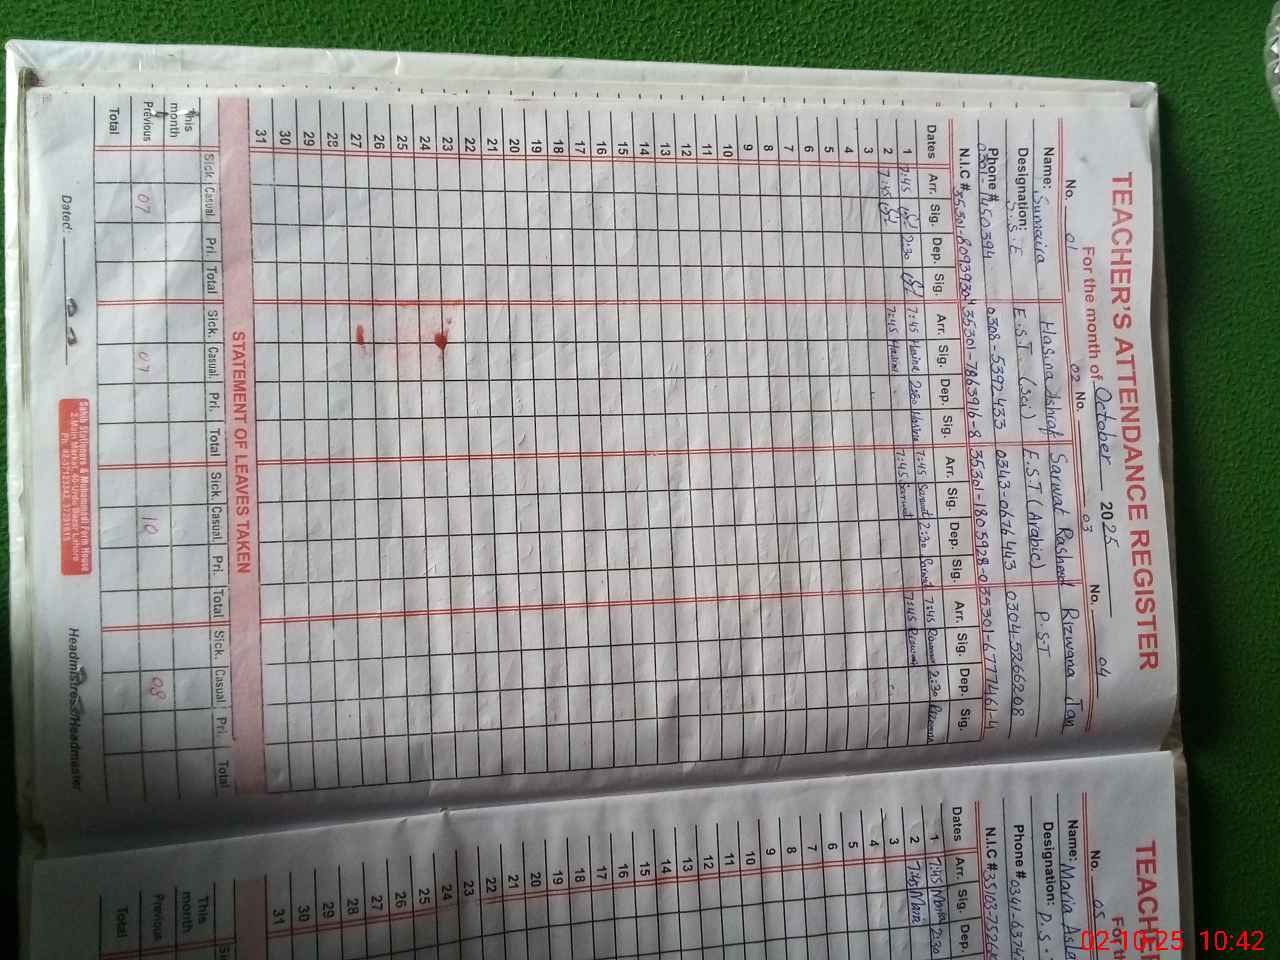 TEACHER'S ATTENDANCE REGISTER
For the month of October 2025
No. 01 02 No. 03 No. 04
Name: Sumaira Hasina Ashraf Sarwat Rasheed Rizwana Jan
Designation: S.S.E E.S.T (Sci) E.S.T (Arabic) P.S.T
Phone # 0308-5392433 0343-0676443 0304-5866208
N.I.C # 35301-7863916-8 35301-1805928-0 35301-6777461-4
Dates Arr. Sig. Dep. Sig. Arr. Sig. Dep. Sig. Arr. Sig. Dep. Sig. Arr. Sig. Dep. Sig.
1 7:45 2:30 7:45 7:45 Sarwat 2:30 Sarwat 7:45 2:30
2 7:45 7:45 7:45 Sarwat 7:45
3
4
5
6
7
8
9
10
11
12
13
14
15
16
17
18
19
20
21
22
23
24
25
26
27
28
29
30
31
STATEMENT OF LEAVES TAKEN
Sick. Casual Pri. Total Sick. Casual. Pri. Total Sick. Casual. Pri. Total Sick. Casual Pri. Total
This month
Previous 07 07 10 08
Total
Dated: Headmistress/Headmaster
Sahib Stationers & Muhammadi Form House
2-Main Market, 40-Urdu Bazar Lahore
TEACHER
No. 05
Name: Maria
Designation: P.S.
Phone #
N.I.C #
Dates Arr. Sig. Dep.
1 7:45 Maria 2:30
2 7:45 Maria
3
4
5
6
7
8
9
10
11
12
13
14
15
16
17
18
19
20
21
22
23
24
25
26
27
28
29
30
31
This month
Previous
Total
02-10-25 10:42